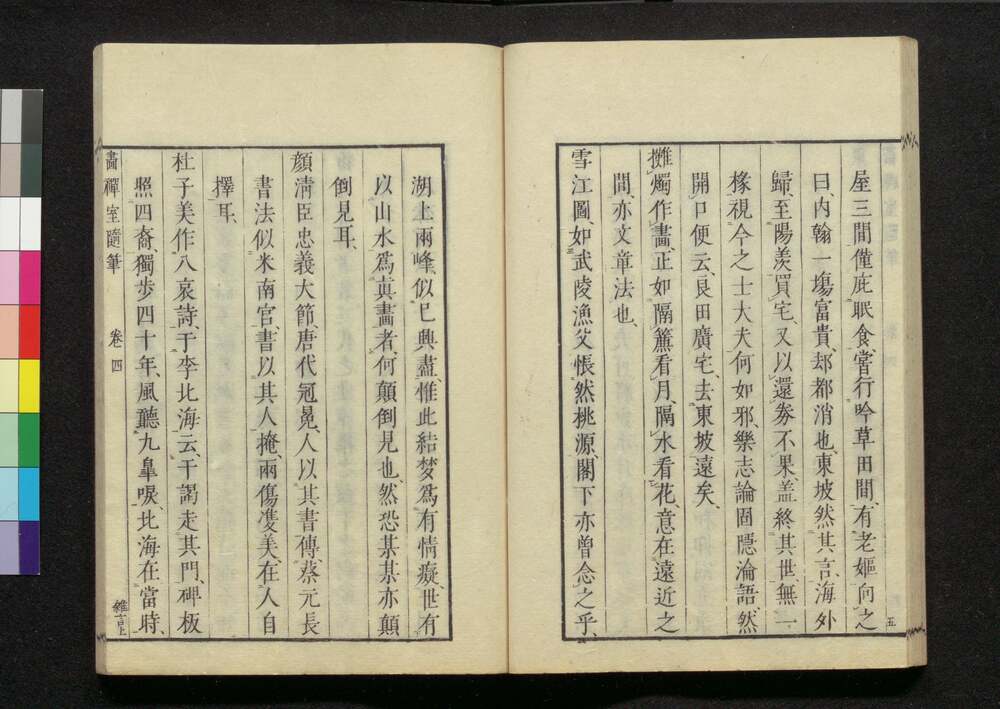 屋三間僅庇眠食嘗行吟草田間有老嫗向之
曰、内翰一塲富貴、却都消也、東坡然其言、海外
歸、至陽羨買宅、又以還劵不果、盖終其世無一
椽、視今之士大夫何如邪、樂志論固隱淪語、然
開口便云、良田廣宅、去東坡遠矣、
攤燭作畵、正如隔簾看月、隔水看花、意在遠近之
間、亦文章法也、
雪江圖、如武陵漁父、悵然桃源、閣下亦曾念之乎、
五
湖上兩峰、似已興盡、惟此結夢、爲有情癡、世有
以山水爲真畵者、何顛倒見也、然恐某某亦顛
倒見耳、
顔淸臣忠義大節、唐代冠冕、人以其書傳、蔡元長
書法似米南宫、書以其人掩、兩傷䨇美、在人自
擇耳、
杜子美作八哀詩、于李北海云、干謁走其門、碑板
照四裔、獨步四十年、風聽九臯唳、北海在當時、
畵禪室隨筆
卷四
雜言上